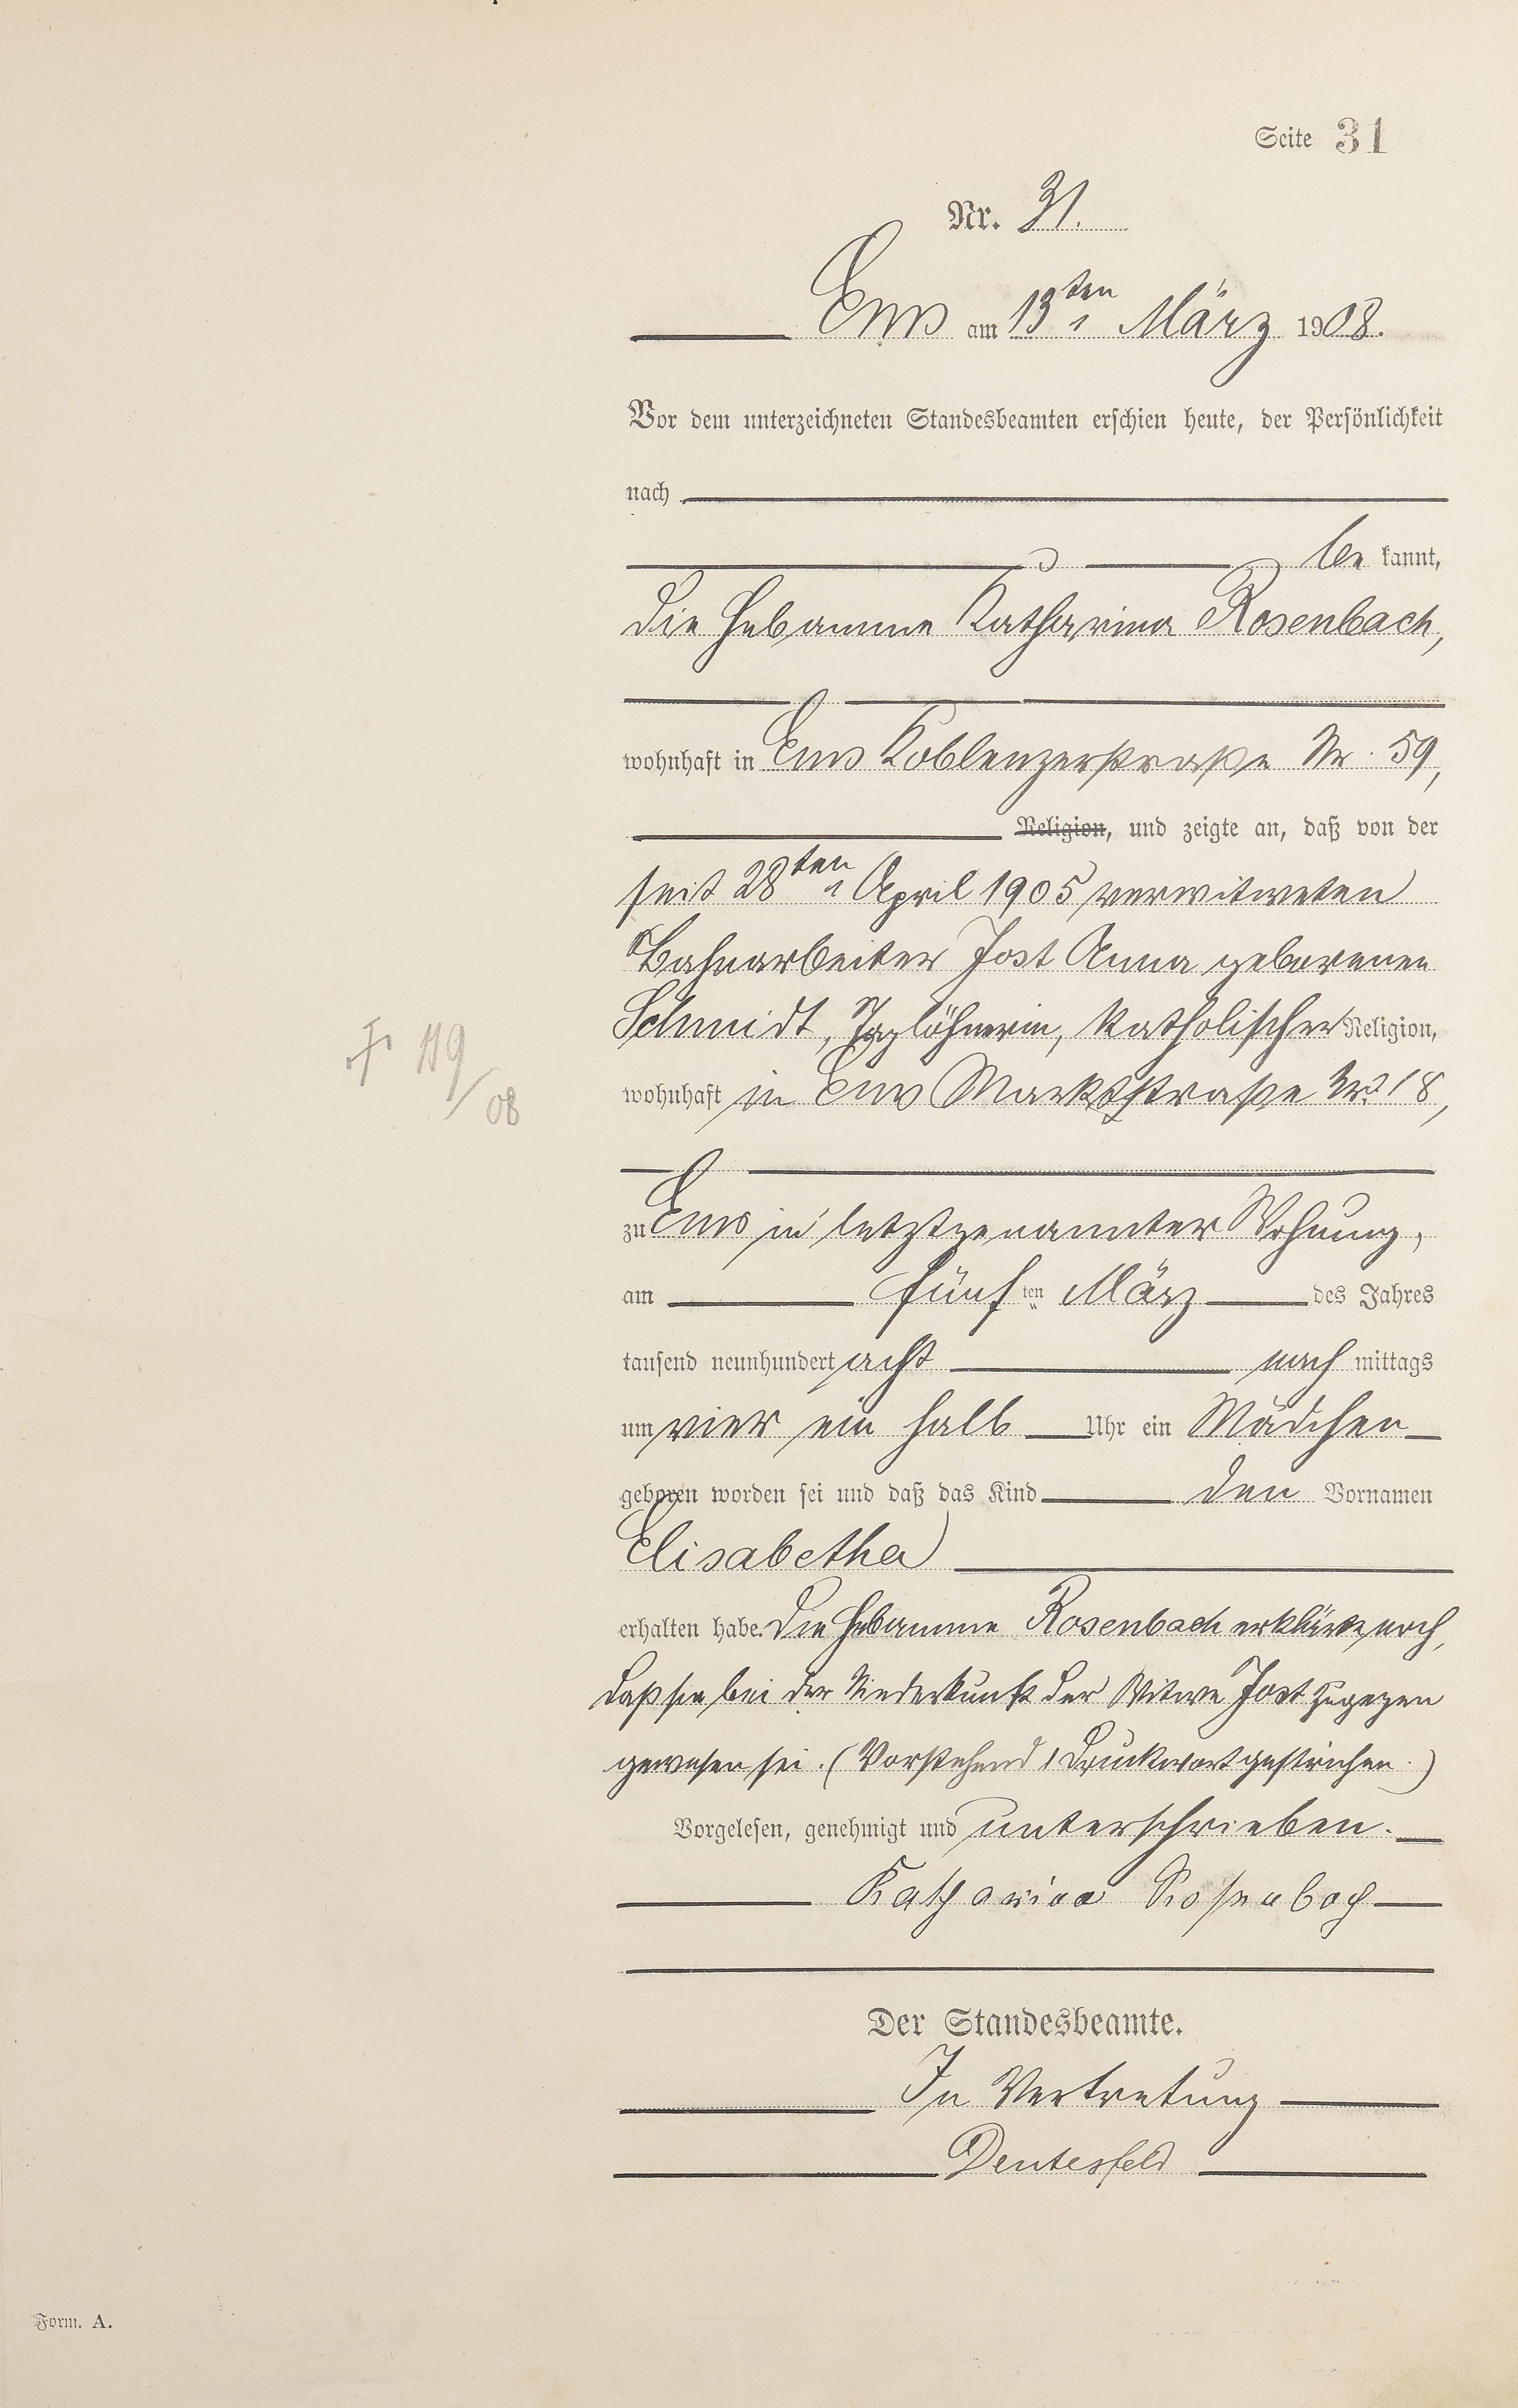 Seite 31
Nr. 31.
Ems am 13ten März 1908.
Vor dem unterzeichneten Standesbeamten erschien heute, der Persönlichkeit
nach
be kannt,
die Hebamme Katharina Rosenbach,
wohnhaft in Ems Koblenzerstraße Nr. 59,
Religion, und zeigte an, daß von der
seit 28ten April 1905 verwitweten
Bahnarbeiter Jost Anna geborenen
Schmidt, Taglöhnerin, katholischer Religion,
wohnhaft in Ems Marktstraße No. 18,
119
/08
zu Ems in letztgenannter Wohnung,
am fünf ten März des Jahres
tausend neunhundert acht nach mittags
um vier ein halb Uhr ein Mädchen
geboren worden sei und daß das Kind den Vornamen
Elisabetha
erhalten habe. Die Hebamme Rosenbach erklärte noch,
daß sie bei der Niederkunft der Witwe Jost zugegen
gewesen sei. (Vorstehend 1 Druckwort gestrichen.)
Vorgelesen, genehmigt und unterschrieben.
Katharina Rosenbach
Der Standesbeamte.
In Vertretung
Form. A.